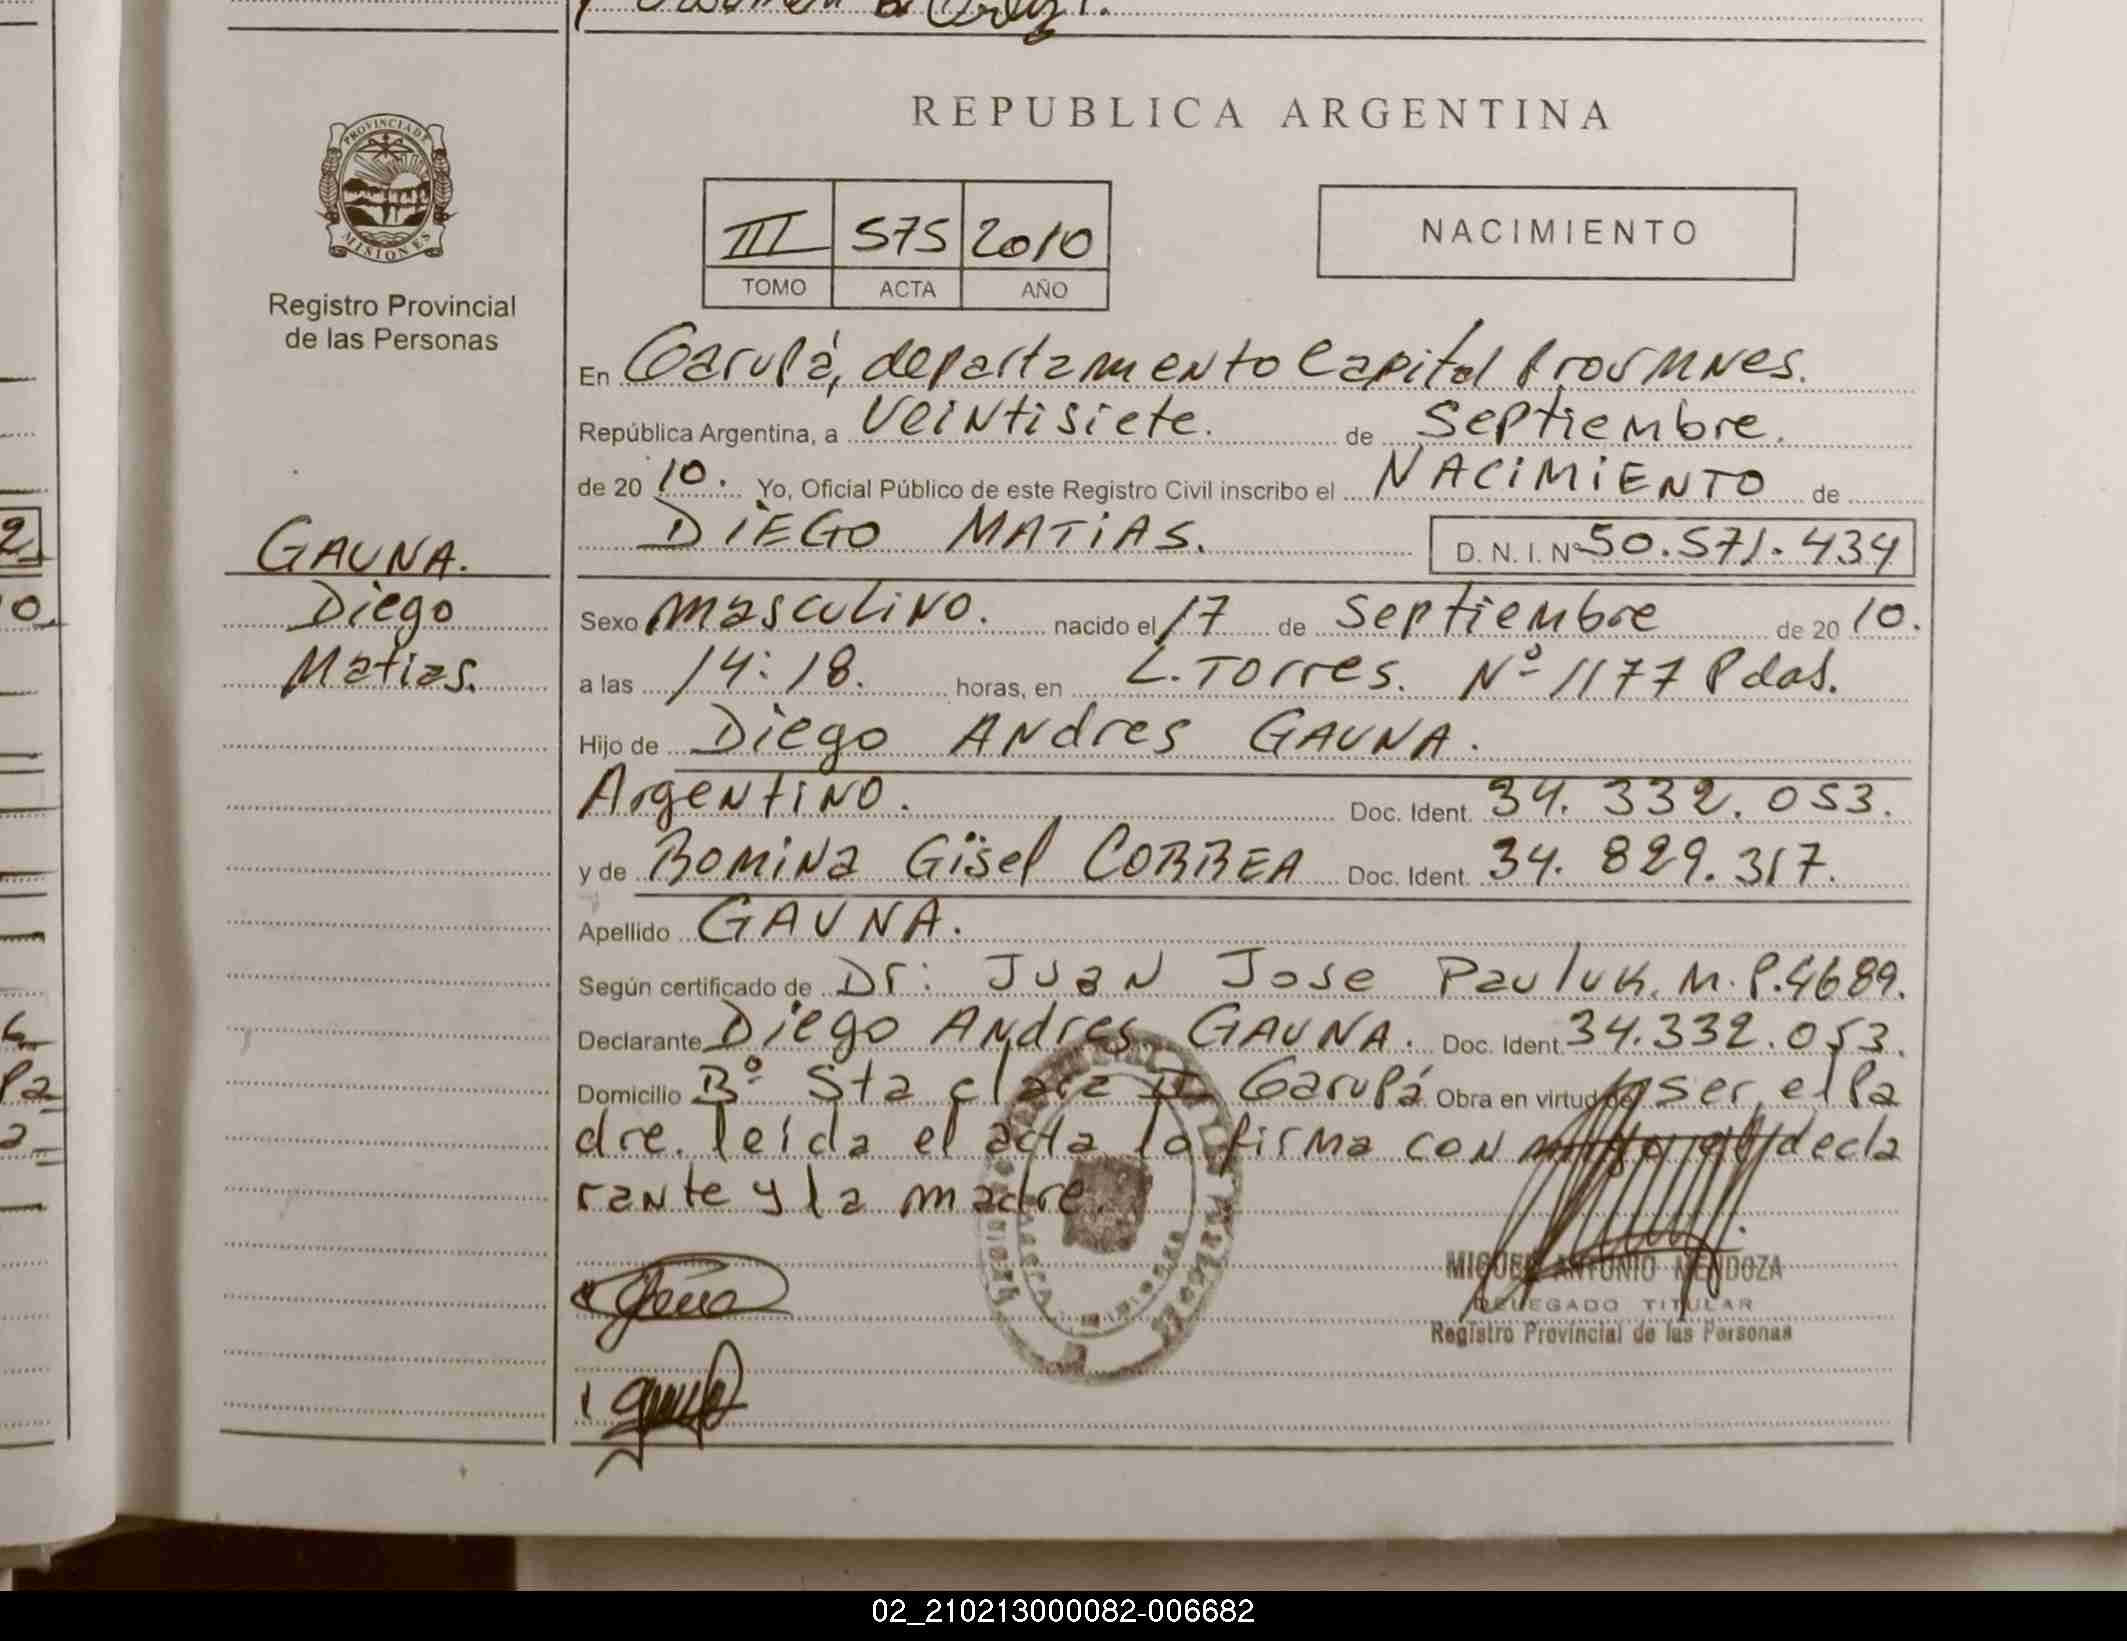 REPUBLICA ARGENTINA
PROVINCIA DE MISIONES
Registro Provincial
de las Personas
III 575 2010
TOMO ACTA AÑO
NACIMIENTO
En Garupá, departamento Capital Prov Mnes.
República Argentina, a Veintisiete. de Septiembre.
de 20 10. Yo, Oficial Público de este Registro Civil inscribo el NACIMIENTO de
DIEGO MATIAS. D. N. I. Nº 50.571.434
GAUNA.
Diego
Matias.
Sexo masculino. nacido el 17 de Septiembre de 20 10.
a las 14:18. horas, en L. Torres. Nº 1177 Pdas.
Hijo de Diego Andres GAUNA.
Argentino. Doc. Ident. 34.332.053.
y de Romina Gisel CORREA Doc. Ident. 34.829.317.
Apellido GAUNA.
Según certificado de Dr: Juan Jose Pauluk. M.P.4689.
Declarante Diego Andres GAUNA. Doc. Ident. 34.332.053.
Domicilio Bº Sta clara II Garupá Obra en virtud de ser el Pa
dre. leída el acta la firma con migo el decla
rante y la madre.
MIGUEL ANTONIO MENDOZA
DELEGADO TITULAR
Registro Provincial de las Personas
02_210213000082-006682